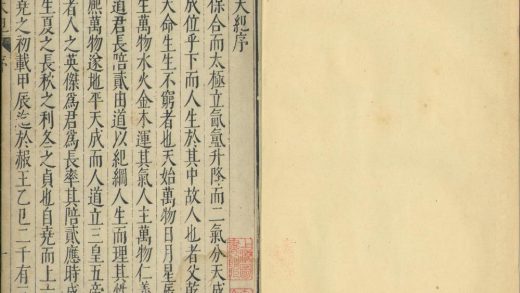 大紀序
保合而太極立氤氳升降而二氣分天成
成位乎下而人生於其中故人也者父乾
天命生生不窮者也天始萬物日月星辰
生萬物水火金木運其氣人主萬物仁義
道君長陪貳由道以紀綱人生而理其性
熙萬物遂地平天成而人道立三皇五帝
者人之英傑為君為長率其陪貳應時成
生夏之長秋之利冬之貞也自堯而上
堯之初載甲辰迄於赧王乙巳二千有
序